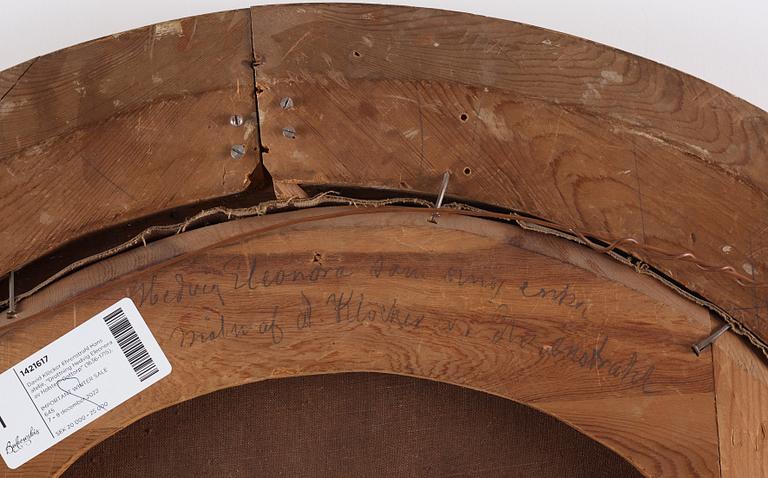 Hedvig Eleonora som ung enka
måln af d Klöcker v. Ehrenstrahl
1421617
David Klöcker Ehrenstrahl Hans
ateljé, "Drottning Hedvig Eleonora
av Holstein-Gottorp" (1636-1715).
IMPORTANT WINTER SALE
645
7 - 9 december 2022
SEK 20 000 - 25 000
Bukowskis